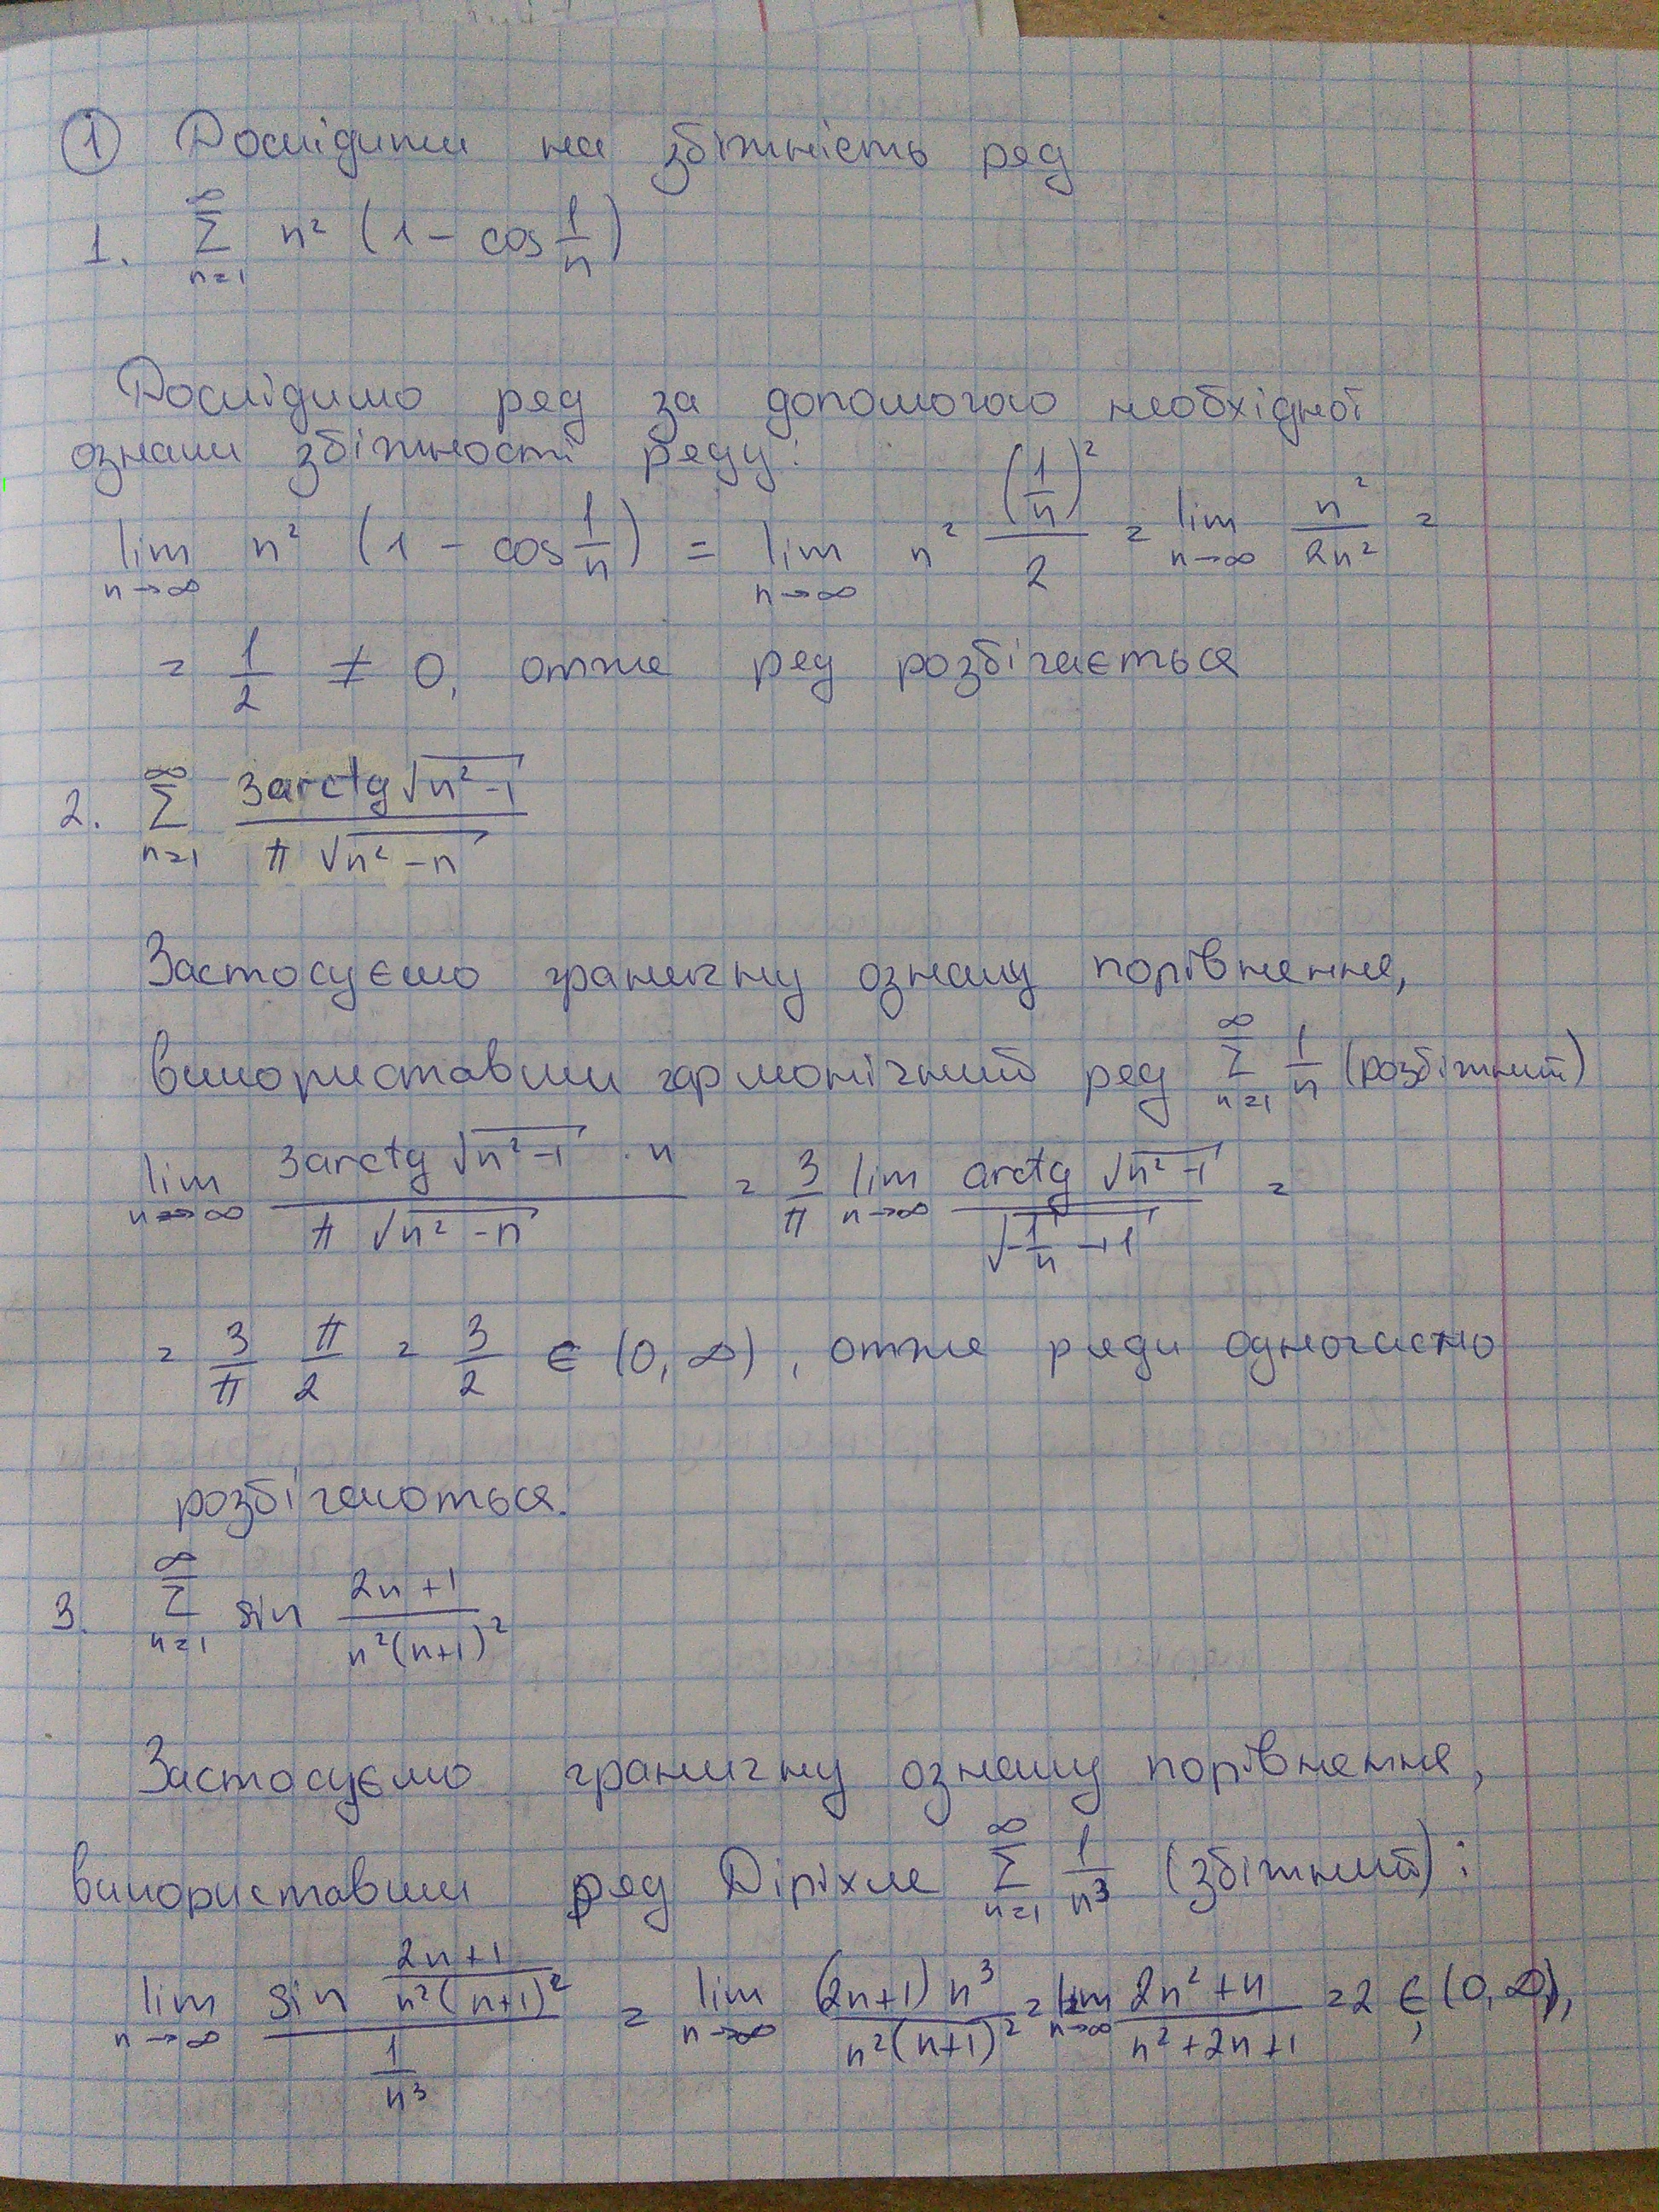 ① Дослідити на збіжність ряд
1. ∑_{n=1}^{∞} n² (1 - cos 1/n)
Дослідимо ряд за допомогою необхідної
ознаки збіжності ряду:
lim_{n→∞} n² (1 - cos 1/n) = lim_{n→∞} n² (1/n)²/2 = lim_{n→∞} n²/2n² =
= 1/2 ≠ 0, отже ряд розбігається
2. ∑_{n=1}^{∞} 3arctg√(n²-1) / π√(n²-n)
Застосуємо граничну ознаку порівняння,
використавши гармонічний ряд ∑_{n=1}^{∞} 1/n (розбіжний)
lim_{n→∞} 3arctg√(n²-1) · n / π√(n²-n) = 3/π lim_{n→∞} arctg√(n²-1) / √(-1/n+1) =
= 3/π π/2 = 3/2 ∈ (0, ∞), отже ряди одночасно
розбігаються.
3. ∑_{n=1}^{∞} sin (2n+1)/(n²(n+1)²)
Застосуємо граничну ознаку порівняння,
використавши ряд Діріхле ∑_{n=1}^{∞} 1/n³ (збіжний):
lim_{n→∞} sin (2n+1)/(n²(n+1)²) / (1/n³) = lim_{n→∞} (2n+1)n³/(n²(n+1)²) = lim_{n→∞} (2n²+n)/(n²+2n+1) = 2 ∈ (0, ∞),